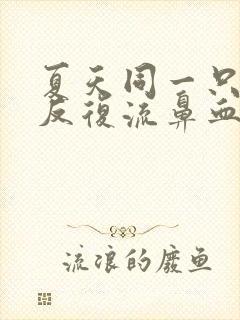 夏天同一只
反復流鼻血
流浪的廢鱼